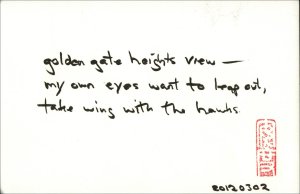 golden gate heights view —
my own eyes want to leap out,
take wing with the hawks.
20120302